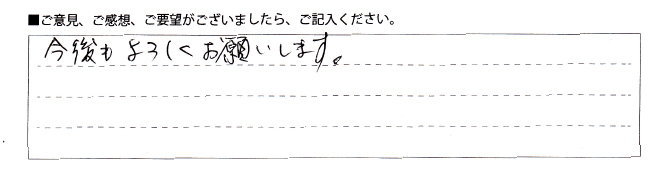 ■ご意見、ご感想、ご要望がございましたら、ご記入ください。
今後もよろしくお願いします。